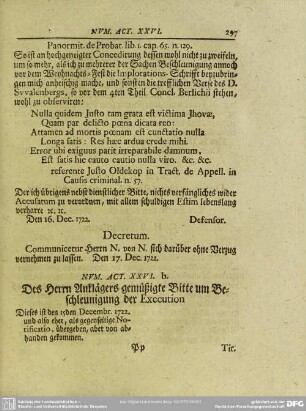 NVM. ACT. XXVI. 297
Panormit. de Probat. lib. 1. cap. 65. n. 129.
So ist an hochgeneigter Concedirung dessen wohl nicht zu zweifeln,
um so mehr, als ich zu mehrerer der Sachen Beschleunigung annoch
vor dem Weyhnachts-Fest die Implorations-Schrifft beyzubrin-
gen mich anheischig mache, und sonsten die trefflichen Verse des D.
Svvalenbergs, so vor dem 4ten Theil Concl. Berlichii stehen,
wohl zu observiren:
Nulla quidem Justo tam grata est victima Jhovæ,
Quam par delicto pœna dicata reo:
Attamen ad mortis pœnam est cunctatio nulla
Longa satis: Res hæc ardua crede mihi.
Error ubi exiguus parit irreparabile damnum,
Est satis hic cauto cautio nulla viro. &c. &c.
referente Justo Oldekop in Tract. de Appell. in
Causis criminal. n. 57.
Der ich übrigens nebst dienstlicher Bitte, nichts verfängliches wider
Accusatum zu verordnen, mit allem schuldigen Estim lebenslang
verharre ꝛc. ꝛc.
Den 16. Dec. 1722. Defensor.
Decretum.
Communicetur Herrn N. von N. sich darüber ohne Verzug
vernehmen zu lassen. Den 17. Dec. 1722.
NVM. ACT. XXVI. b.
Des Herrn Anklägers gemüßigte Bitte um Be-
schleunigung der Execution
Dieses ist den Decembr. 1722.
und also eher, als gegenseitige No-
tificatio, übergeben, aber von ab-
handen gekommen.
Pp Tit.